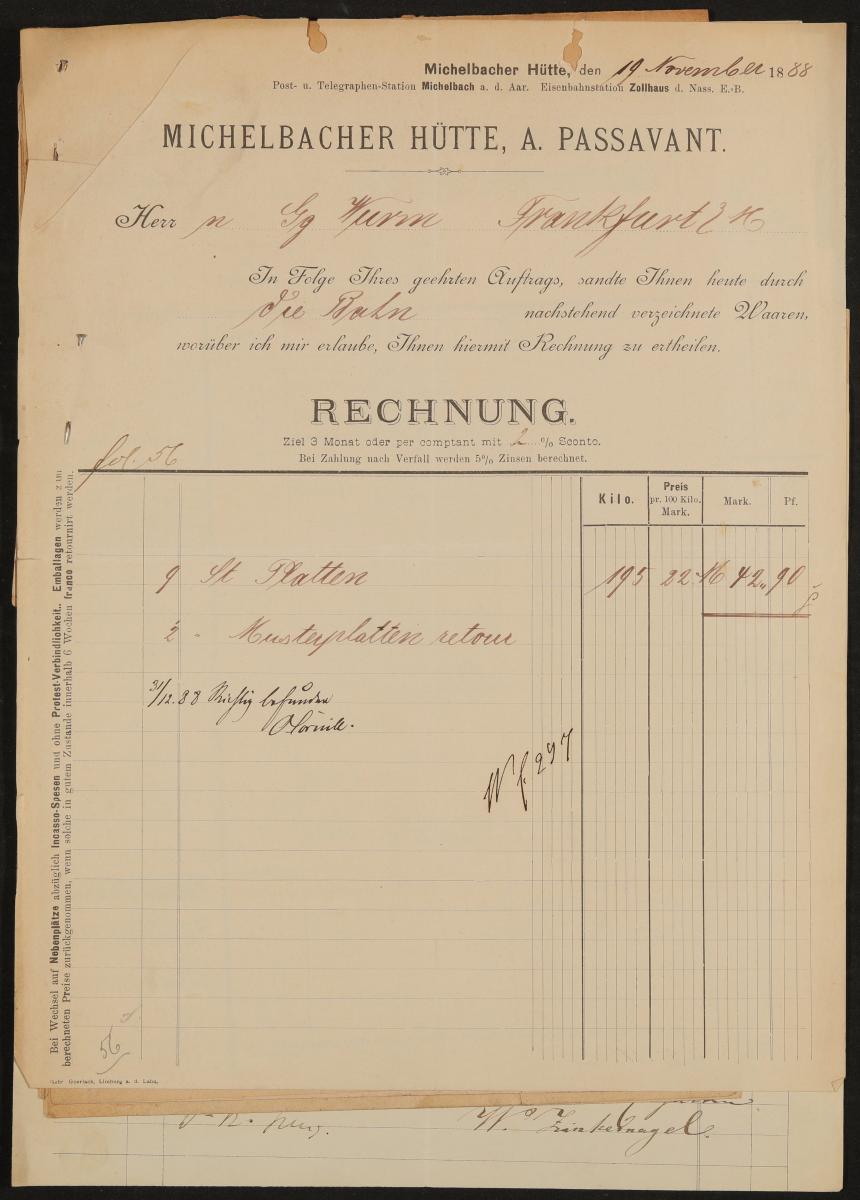 Michelbacher Hütte, den 19 November 1888
Post- u. Telegraphen-Station Michelbach a. d. Aar. Eisenbahnstation Zollhaus d. Nass. E.-B.
MICHELBACHER HÜTTE, A. PASSAVANT.
Herrn Gg Wurm Frankfurt
In Folge Ihres geehrten Auftrags, sandte Ihnen heute durch
die Bahn nachstehend verzeichnete Waaren,
worüber ich mir erlaube, Ihnen hiermit Rechnung zu ertheilen.
RECHNUNG.
Ziel 3 Monat oder per comptant mit 2 % Sconto.
Bei Zahlung nach Verfall werden 5% Zinsen berechnet.
fol. 56
Kilo. Preis pr. 100 Kilo. Mark. Mark. Pf.
9 St Platten 195 22.- M 42,, 90
2 " Musterplatten retour
31/12.88 Richtig befunden
W f. 297
Bei Wechsel auf Nebenplätze abzüglich Incasso-Spesen und ohne Protest-Verbindlichkeit. Emballagen werden zum
berechneten Preise zurückgenommen, wenn solche in gutem Zustande innerhalb 6 Wochen franco retournirt werden.
56
Goerlach, Limburg a. d. Lahn.
W. Zinkernagel.